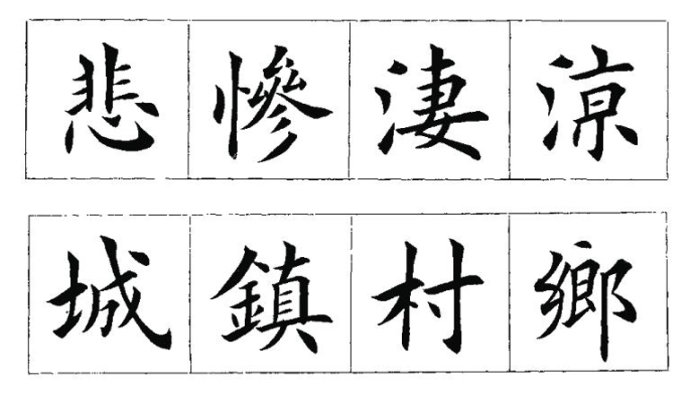 悲慘淒涼
城鎮村鄉